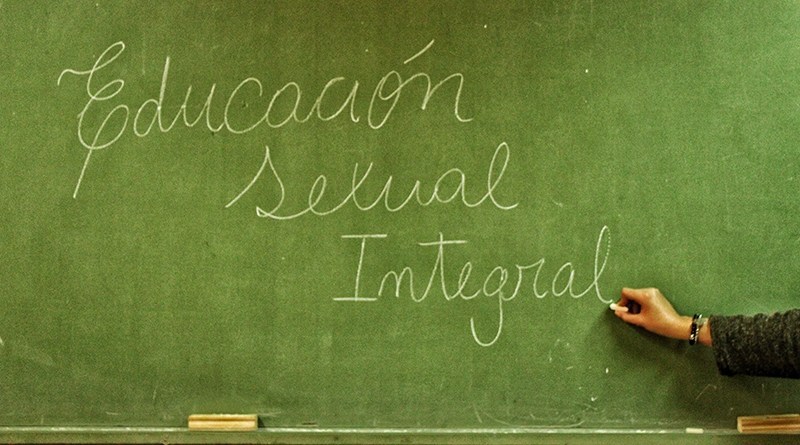 Educación
sexual
Integral